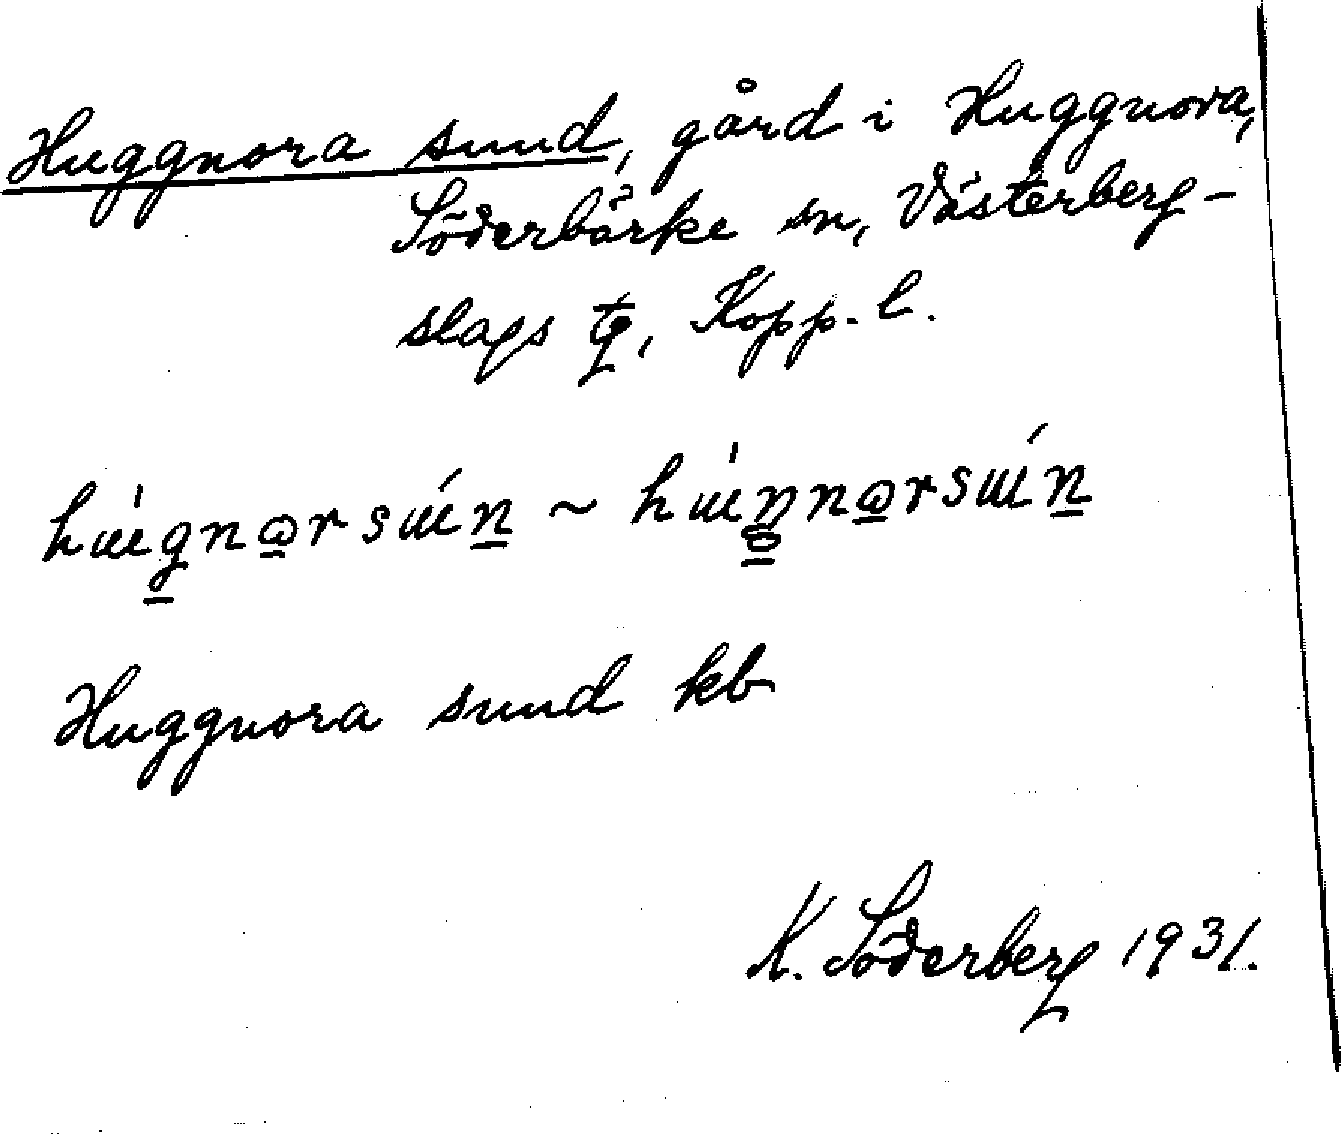 Huggnora sund, gård i Huggnora,
Söderbärke sn, Västerberg-
slags tg, Kopp. l.
hɯ́gnɷrsɯ́n ~ hɯ́ŋnɷrsɯ́n
Huggnora sund kb
K. Söderberg 1931.